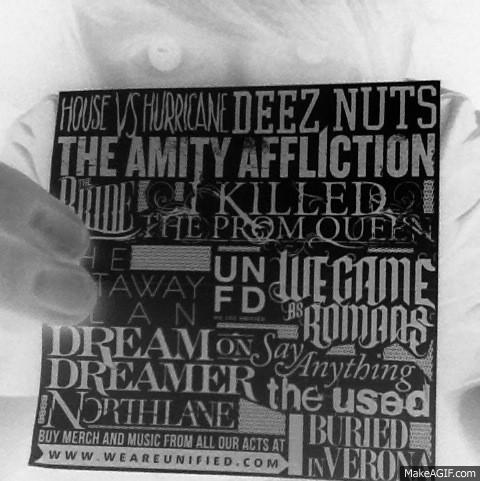 HOUSE VS HURRICANE DEEZ NUTS
THE AMITY AFFLICTION
THE PRIDE I KILLED
THE PROM QUEEN
HE
TAWAY
AN
UN
FD
WE CAME
AS ROMANS
DREAM ON
DREAMER
Say Anything
the used
NORTHLANE
BURIED
IN VERONA
BUY MERCH AND MUSIC FROM ALL OUR ACTS AT
WWW.WEAREUNIFIED.COM
MakeAGIF.com